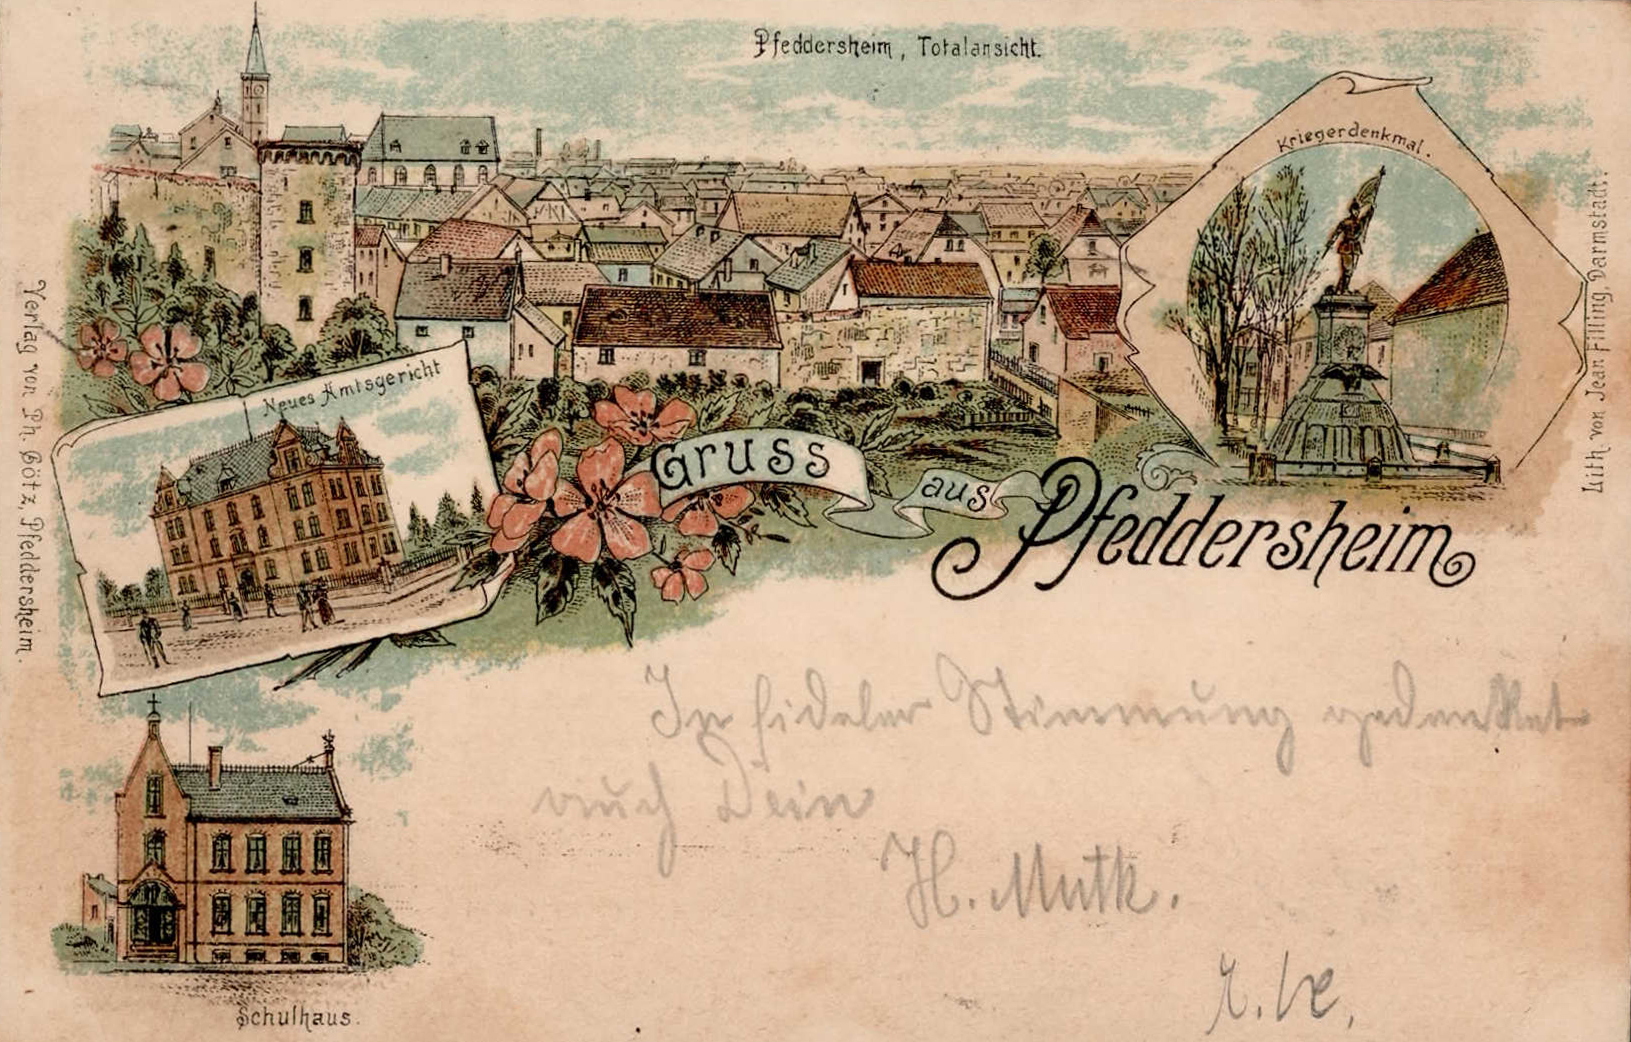 Pfeddersheim, Totalansicht.
Kriegerdenkmal.
Neues Amtsgericht
Gruss
aus
Pfeddersheim
Verlag von Ph. Götz, Pfeddersheim.
Lith von Jean Filling, Darmstadt.
In fideler Stimmung gedenket
auch Dein
H. Mutk.
Schulhaus.